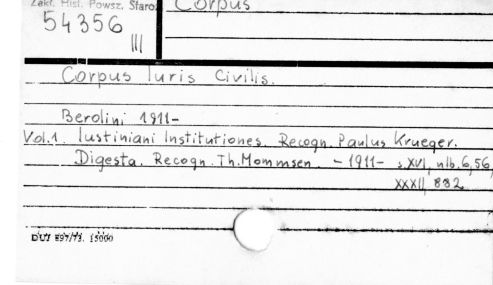 Zakł. Hist. Powsz. Staro
54356
III
Corpus
Corpus Iuris Civilis.
Berolini 1911-
Vol.1. Iustiniani Institutiones. Recogn. Paulus Krueger.
Digesta. Recogn. Th. Mommsen. - 1911- s. XVI, nlb. 6, 56,
XXXII, 882
DUJ 897/73. 15000